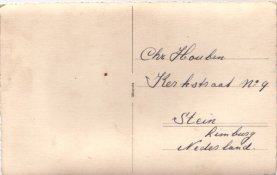 Chr Houben
Kerkstraat No 9
Stein
Limburg
Nederland.